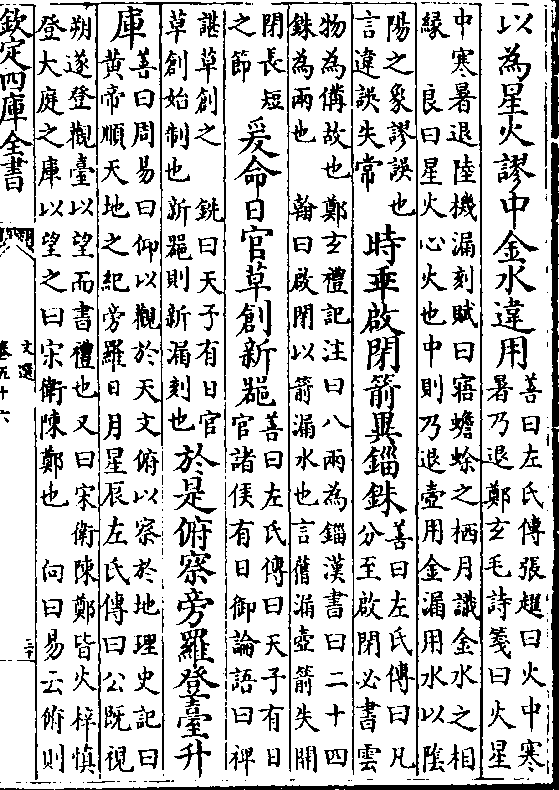 以為星火謬中金水違用
善曰左氏傳張趯曰火中寒
暑乃退鄭玄毛詩箋曰火星
中寒暑退陸機漏刻賦曰寤蟾蜍之栖月識金水之相
縁 良曰星火心火也中則乃退壺用金漏用水以隂
陽之象謬誤也
言違誤失常
時乖啟閉箭異錙銖
善曰左氏傳曰凡
分至啟閉必書雲
物為備故也鄭玄禮記注曰八兩為錙漢書曰二十四
銖為兩也 翰曰啟閉以箭漏水也言舊漏壺箭失開
閉長短
之節
爰命日官草創新噐
善曰左氏傳曰天子有日
官諸侯有日御論語曰禆
諶草創之 銑曰天子有日官
草創始制也新噐則新漏刻也
於是俯察旁羅登臺升
庫
善曰周易曰仰以觀於天文俯以察於地理史記曰
黄帝順天地之紀旁羅日月星辰左氏傳曰公既視
朔遂登觀臺以望而書禮也又曰宋衛陳鄭皆火梓慎
登大庭之庫以望之曰宋衛陳鄭也 向曰易云俯則
欽定四庫全書
文選
卷五十六